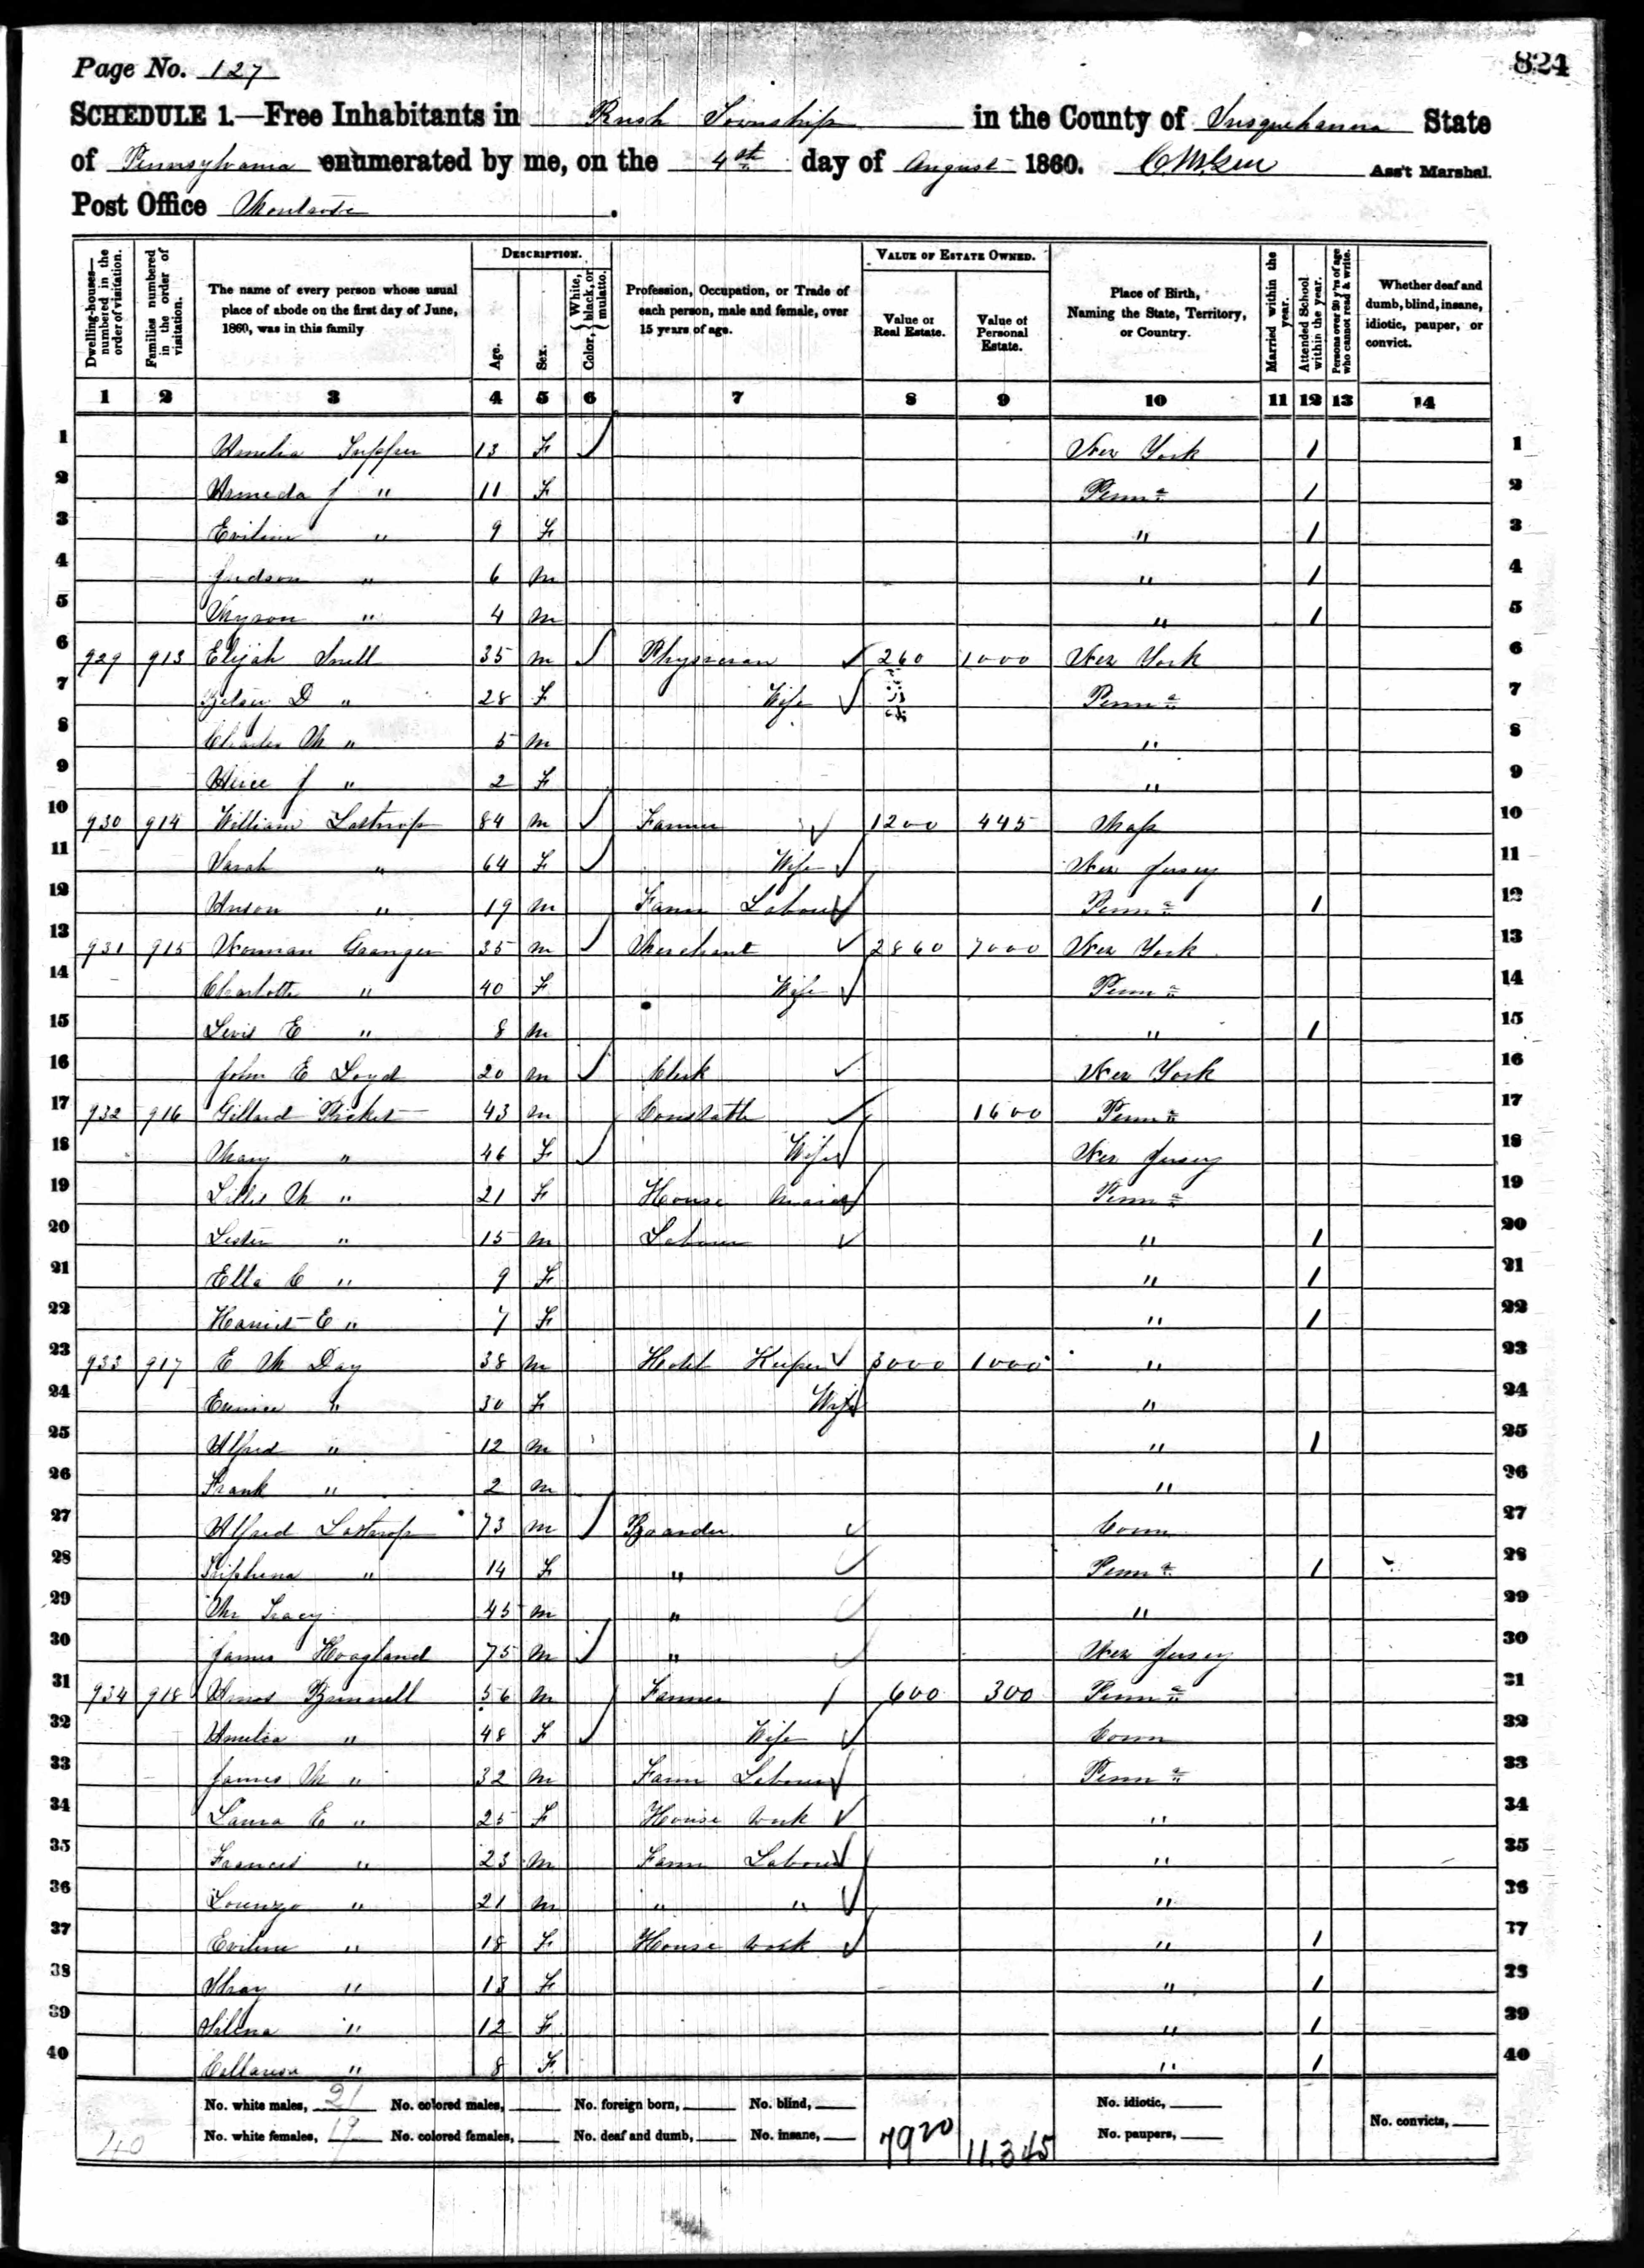 824
Page No. 127
SCHEDULE 1.—Free Inhabitants in Rush Township in the County of Susquehanna State
of Pennsylvania enumerated by me, on the 4th day of August 1860. Ass't Marshal.
Post Office Montrose.
DESCRIPTION. VALUE OF ESTATE OWNED.
Dwelling-houses—numbered in the order of visitation. Families numbered in the order of visitation. The name of every person whose usual place of abode on the first day of June, 1860, was in this family Age. Sex. Color, White, black, or mulatto. Profession, Occupation, or Trade of each person, male and female, over 15 years of age. Value of Real Estate. Value of Personal Estate. Place of Birth, Naming the State, Territory, or Country. Married within the year. Attended School within the year. Persons over 20 y'rs of age who cannot read & write. Whether deaf and dumb, blind, insane, idiotic, pauper, or convict.
1 2 3 4 5 6 7 8 9 10 11 12 13 14
1 Amelia 13 F New York 1 1
2 Armeda J " 11 F Penn a 1 2
3 Eveline " 9 F " 1 3
4 Judson " 6 M " 1 4
5 Myron " 4 M " 1 5
6 929 913 Elijah Snell 35 M Physician 260 1000 New York 6
7 D " 28 F Wife Penn a 7
8 Charles M " 5 M " 8
9 Alice J " 2 F " 9
10 930 914 William Lathrop 84 M Farmer 1200 445 Mass 10
11 Sarah " 64 F Wife New Jersey 11
12 Anson " 19 M Farm Laborer Penn a 1 12
13 931 915 Norman Granger 35 M Merchant 2860 7000 New York 13
14 Charlotte " 40 F Wife Penn a 14
15 Levis E " 8 M " 1 15
16 John E Loyd 20 M Clerk New York 16
17 932 916 Picket 43 M Constable 1600 Penn a 17
18 Mary " 46 F Wife New Jersey 18
19 Lillis M " 21 F House Maid Penn a 19
20 Lester " 15 M Laborer " 1 20
21 Ella C " 9 F " 1 21
22 Harriet E " 7 F " 1 22
23 933 917 E M Day 38 M Hotel Keeper 3000 1000 " 23
24 Eunice " 30 F Wife " 24
25 Alfred " 12 M " 1 25
26 Frank " 2 M " 26
27 Alfred Lathrop 73 M Boarder Conn 27
28 " 14 F " Penn a 1 28
29 Mr Tracy 45 M " " 29
30 James Hoagland 75 M " New Jersey 30
31 934 918 Amos Bunnell 56 M Farmer 600 300 Penn a 31
32 Amelia " 48 F Wife Conn 32
33 James M " 32 M Farm Laborer Penn a 33
34 Laura E " 25 F House Work " 34
35 Francis " 23 M Farm Laborer " 35
36 Lorenzo " 21 M " " " 36
37 Eveline " 18 F House Work " 1 37
38 May " 13 F " 1 38
39 Silena " 12 F " 1 39
40 " 8 F " 1 40
No. white males, 21 No. colored males, No. foreign born, No. blind, No. idiotic,
40 No. white females, 19 No. colored females, No. deaf and dumb, No. insane, 7920 11.345 No. paupers, No. convicts,